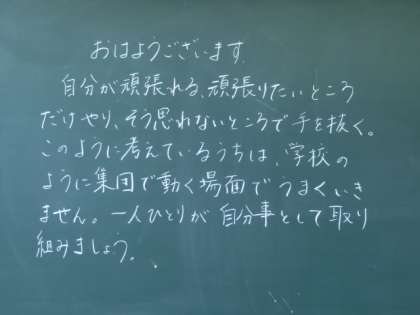 おはようございます。
自分が頑張れる、頑張りたいところ
だけやり、そう思れないところで手を抜く。
このように考えているうちは、学校の
ように集団で動く場面でうまくいき
ません。一人ひとりが自分事として取り
組みましょう。